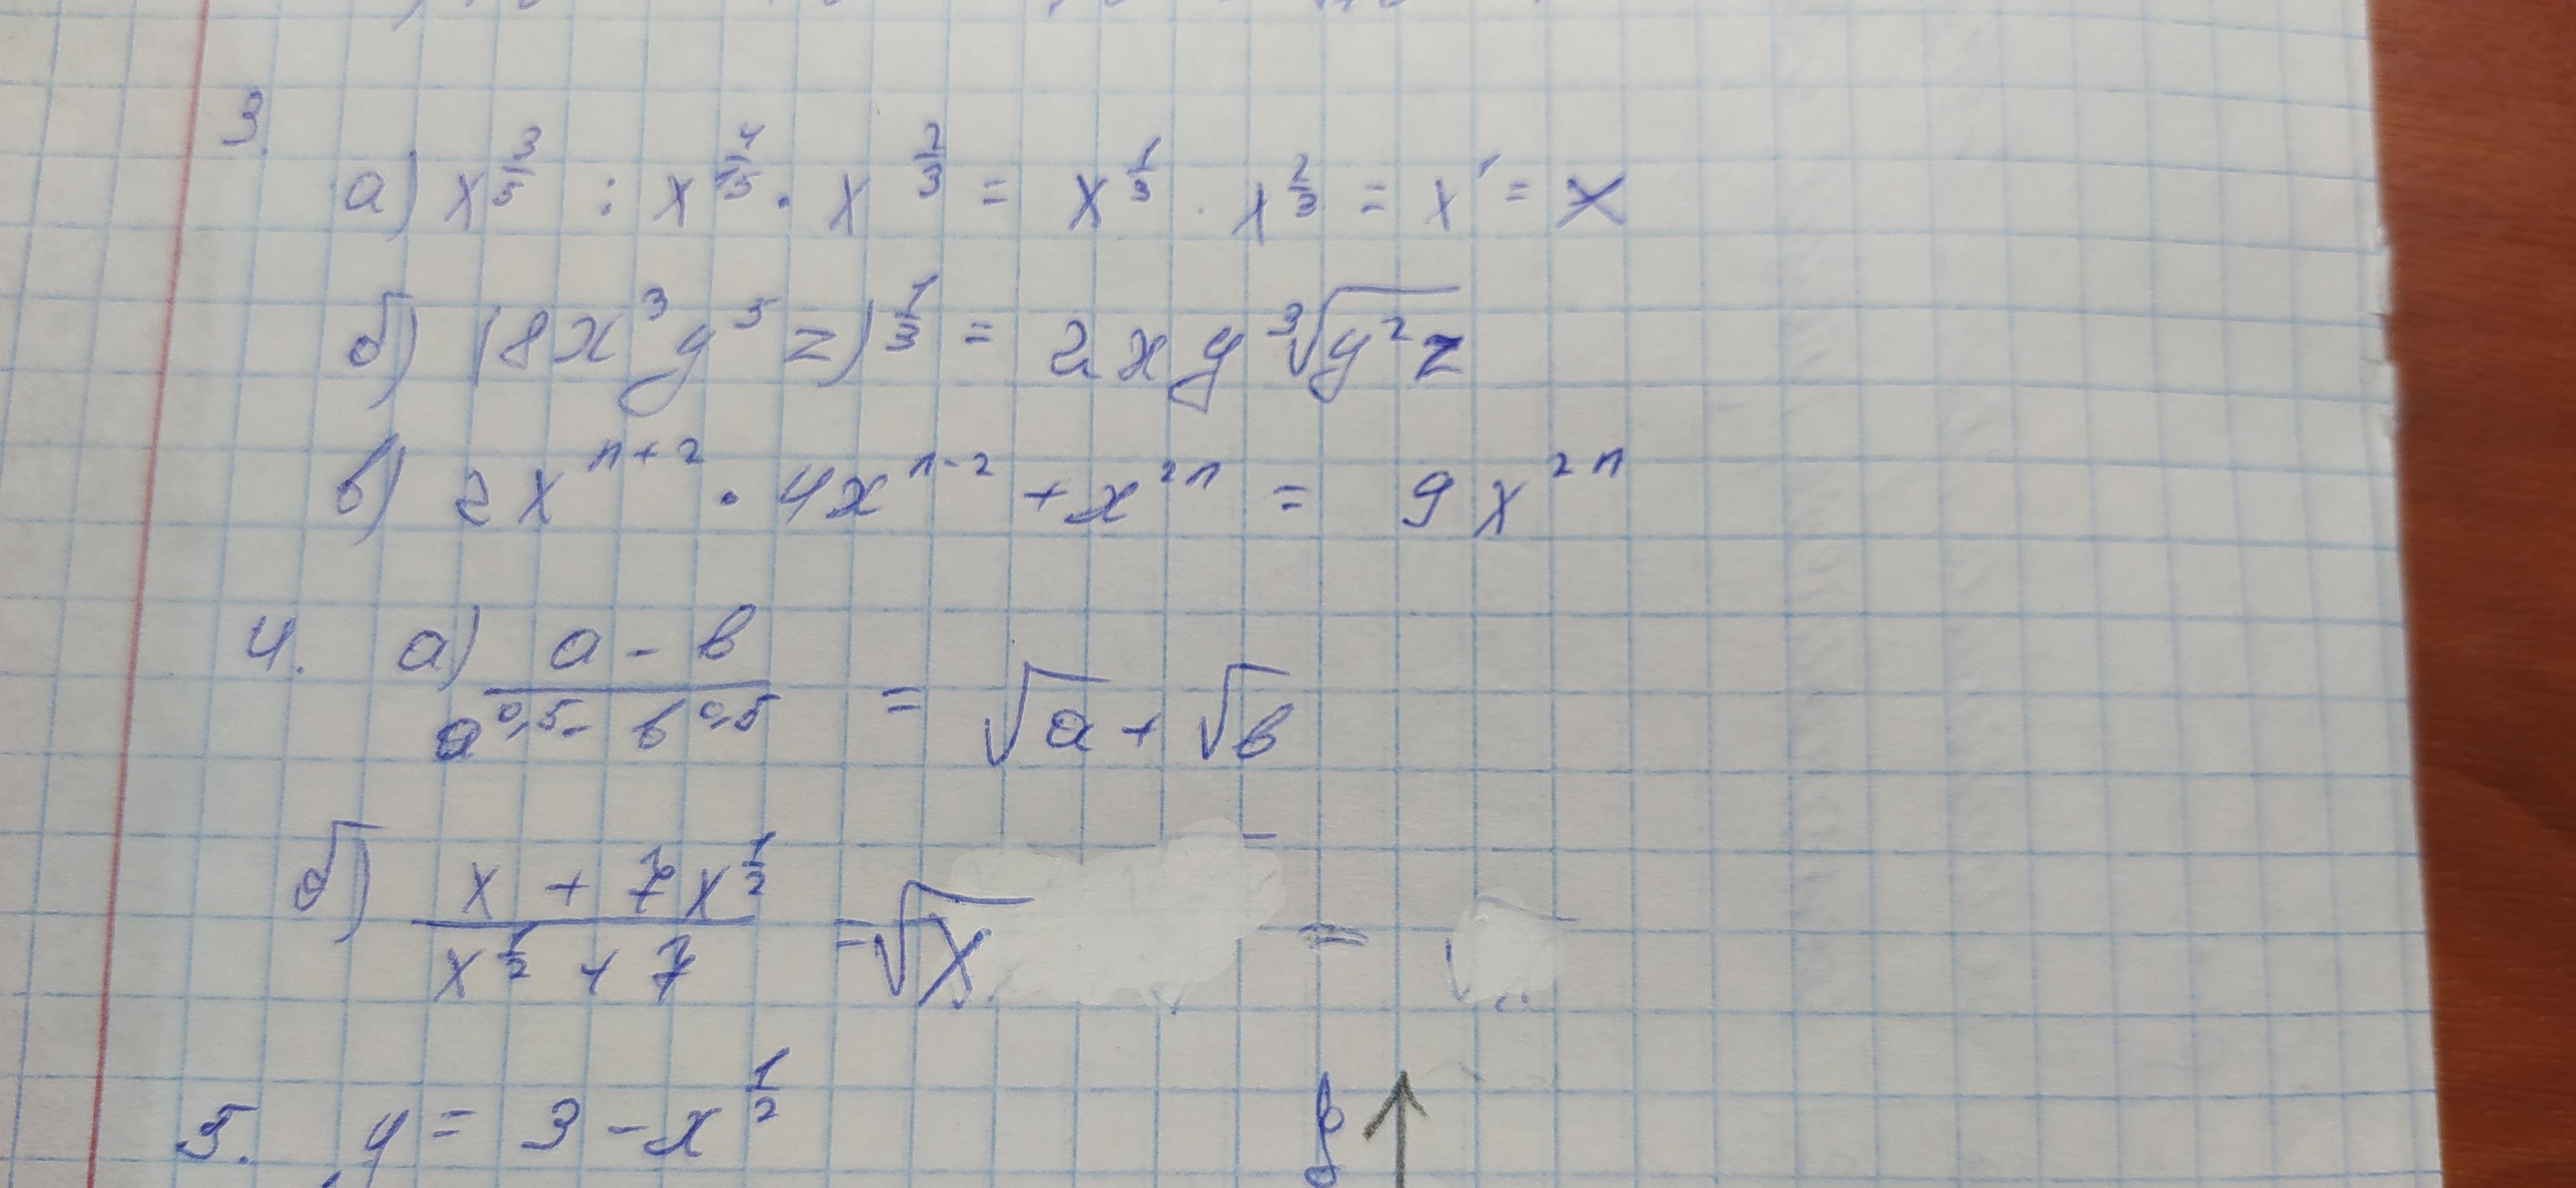 3.
а) x^(3/5) : x^(4/15) · x^(2/3) = x^(1/3) · x^(2/3) = x^1 = x
б) (8x³y⁵z)^(1/3) = 2xy ∛(y²z)
в) 2x^(n+2) · 4x^(n-2) + x^(2n) = 9x^(2n)
4. а) (a - b)/(a^(0,5) - b^(0,5)) = √a + √b
б) (x + 7x^(1/2))/(x^(1/2) + 7) = √x =
5. y = 3 - x^(1/2)